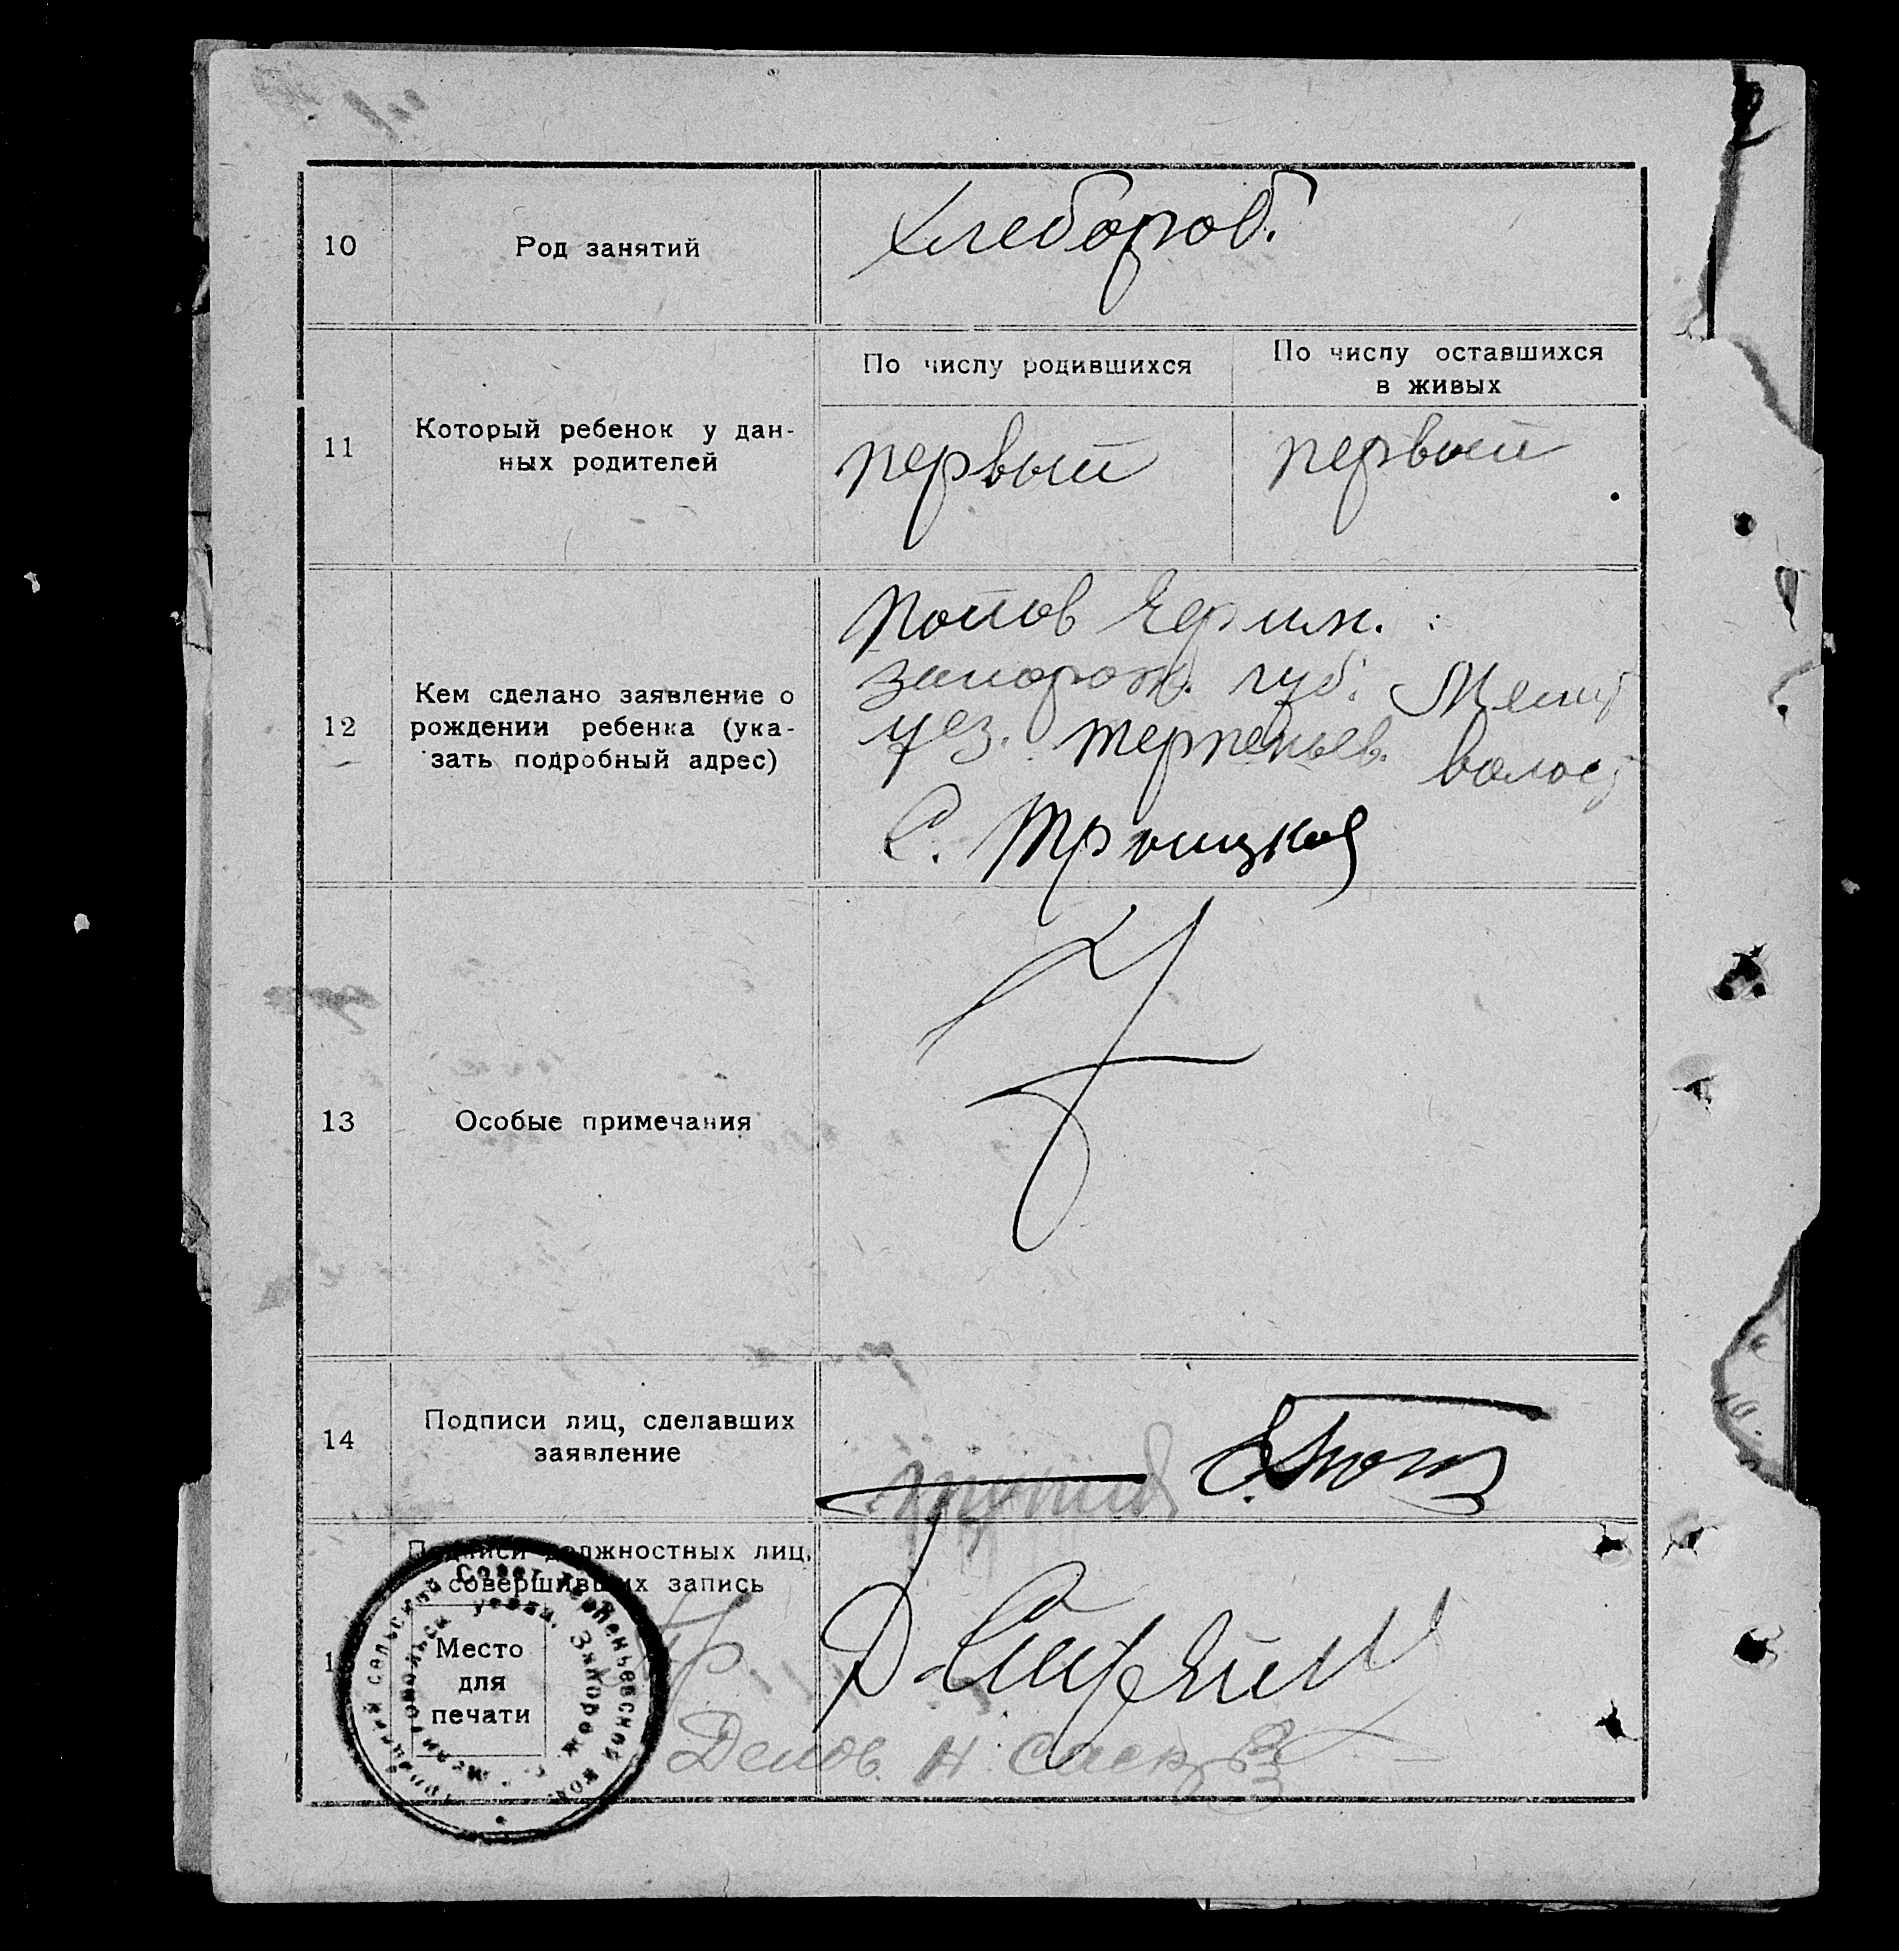 10
Род занятий
Хлебороб.
11
Который ребенок у дан-
ных родителей
По числу родившихся
По числу оставшихся
в живых
первый
первый
12
Кем сделано заявление о
рождении ребенка (ука-
зать подробный адрес)
Попов
запорож. губ. Мелит
уез. терпеньев. волос
С. Троицкое
13
Особые примечания
14
Подписи лиц, сделавших
заявление
Подписи должностных лиц,
совершивших запись
Место
для
печати
Троицкий сельский Совет Терпеньевской вол.
Мелитопольск. уезда, Запорож. г.
Пр.
Делов.